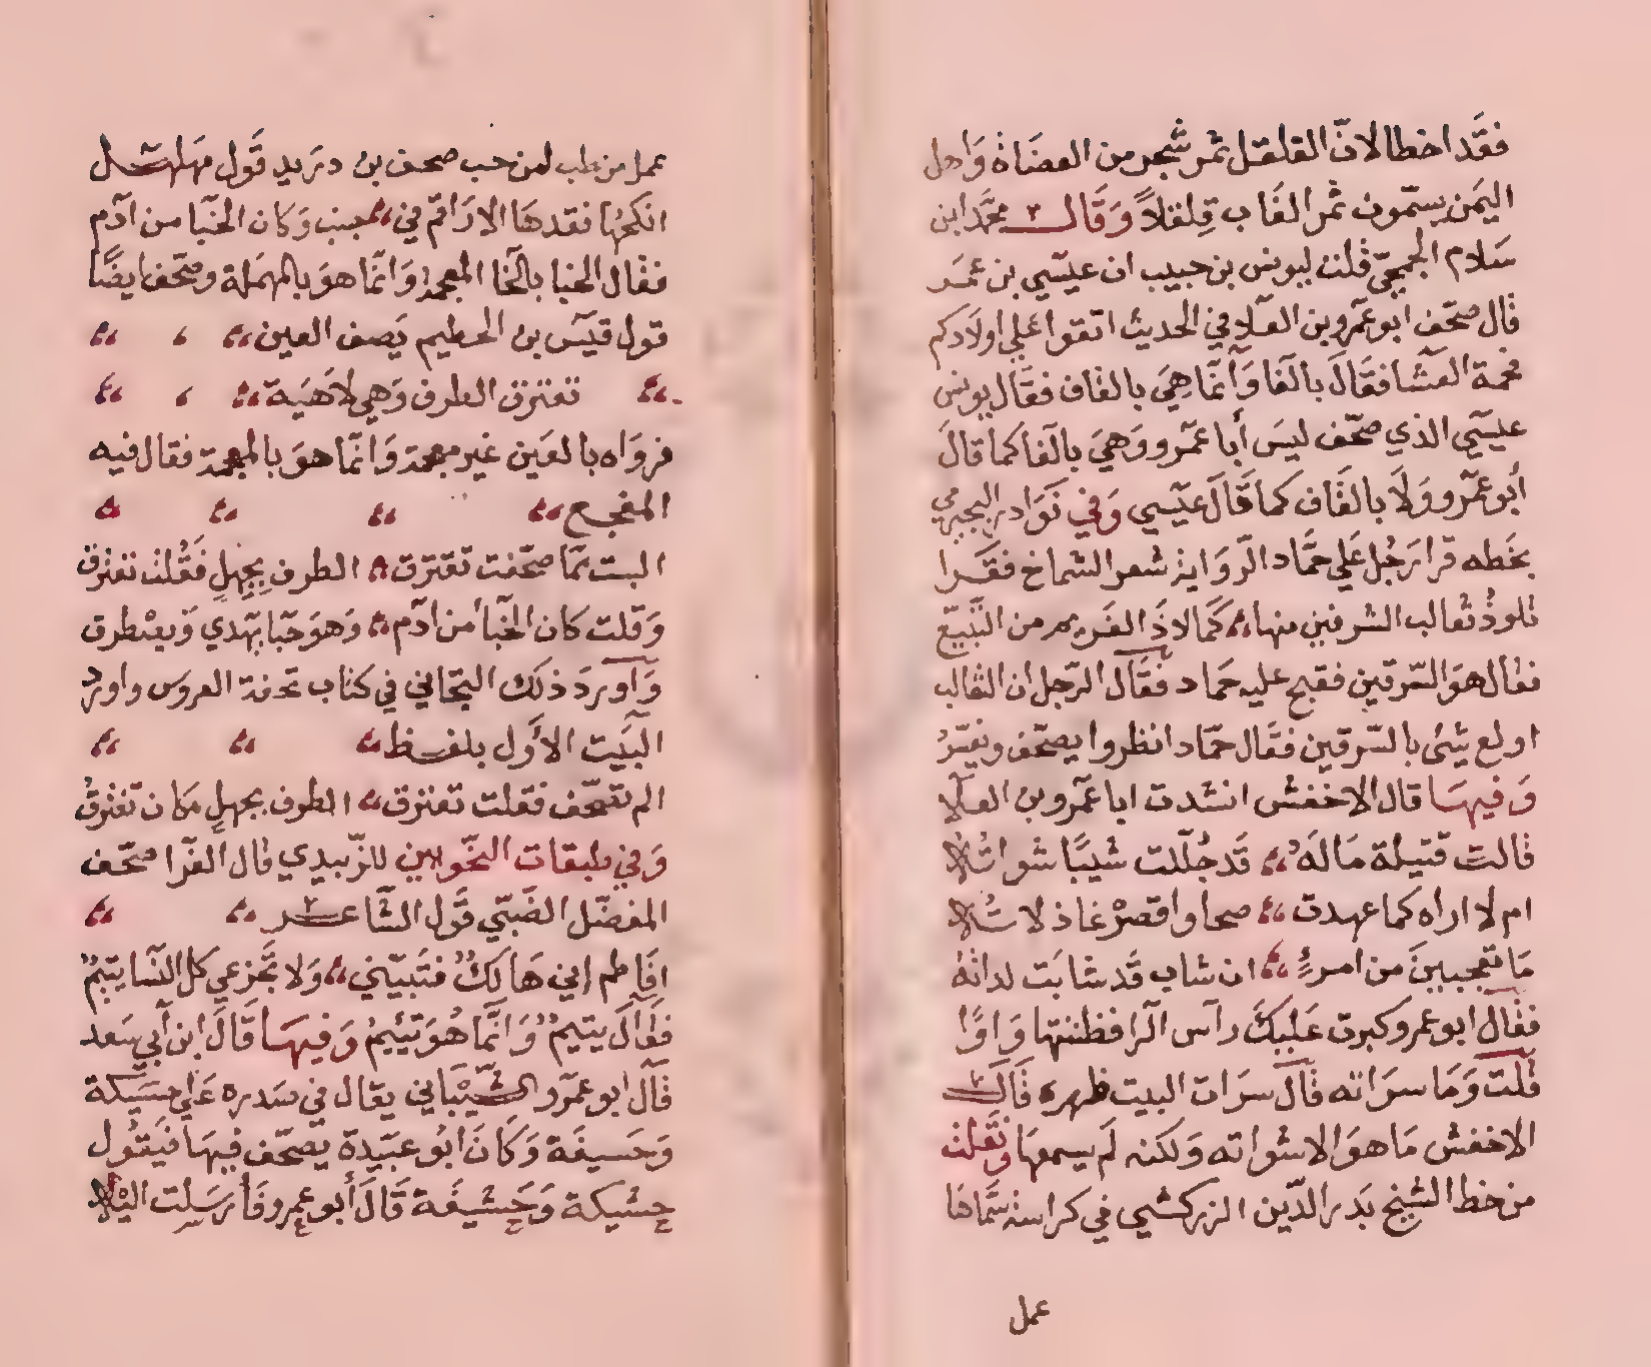 فقد اخطا لانّ القلقل ثمر شجر من العضاة واهل
اليمن يسمّون ثمر الغاب قلقلاً وقال محمّد ابن
سلام الجمحيّ قلت ليونس بن حبيب ان عيسي بن عمر
قال صحّف ابو عمرو بن العلا في الحديث اتقوا علي اولادكم
فحمة العشا فقال بالفا وانّما هي بالقاف فقال يونس
عيسي الذي صحّف ليس أبا عمرو وهي بالفا كما قال
أبو عمرو ولا بالقاف كما قال عيسي وفي نوادر النجيرمي
بخطه قرا رجل علي حمّاد الرّواية شعر الشماخ فقرا
تلوذ ثعالب الشرفين منها كما لاذ الغريم من التّبيع
فقال هو السّرقين فقبح عليه حماد فقال الرّجل ان الثعالب
اولع شئ بالسّرقين فقال حمّاد انظروا يصحّف ويفسّر
وفيها قال الاخفش انشدت ابا عمرو بن العلا
قالت قتيلة ماله قد جُلّلت شيبًا شواته
ام لا اراه كما عهدت صحا واقصر عاذلاته
ما تعجبين من امرءٍ ان شاب قد شابت لداته
فقال ابو عمرو كبرت عليك راس الرا فظننتها واوًا
قلت وما سراته قال سرات البيت ظهره قال
الاخفش ما هو الا شواته ولكنه لم يسمعها ونقلت
من خط الشيخ بدر الدّين الزركشي في كراسة سمّاها
عمل
عمل من طب لمن حب صحف بن دريد قول مهلهل
انكحها فقدها الاراقم في جنب وكان الخبا من ادم
فقال الخبا بالخا المعجمة وانّما هو بالمهملة وصحّف ايضًا
قول قيس بن الخطيم يصف العين
تغترق الطرف وهي لاهية
فرواه بالعين غير معجمة وانّما هو بالمعجمة فقال فيه
المفجع
الست ممّا صحّفت تغترق الطرف بجهلٍ فقلت تعترق
وقلت كان الخبا من ادم وهو حبا يهدي ويصطرق
واورد ذلك التجاني في كتاب تحفة العروس واورد
البيت الأول بلفظ
الم تصحّف فقلت تعترق الطرف بجهلٍ مكان تغترق
وفي طبقات النحوايين للزّبيدي قال الفرّا صحّف
المفضّل الضّبّي قول الشّاعر
افاطم إني هالكٌ فتبيّني ولا تجزعي كل النّسا يتيمُ
فقال يتيمُ وانّما هو تئيمُ وفيها قال ابن أبي سعد
قال ابو عمرو الشّيباني يقال في صدره علي حسيكة
وحسيفة وكان ابو عبيدة يصحّف فيها فيقول
حشيكة وحشيفة قال أبو عمرو فأرسلت اليه